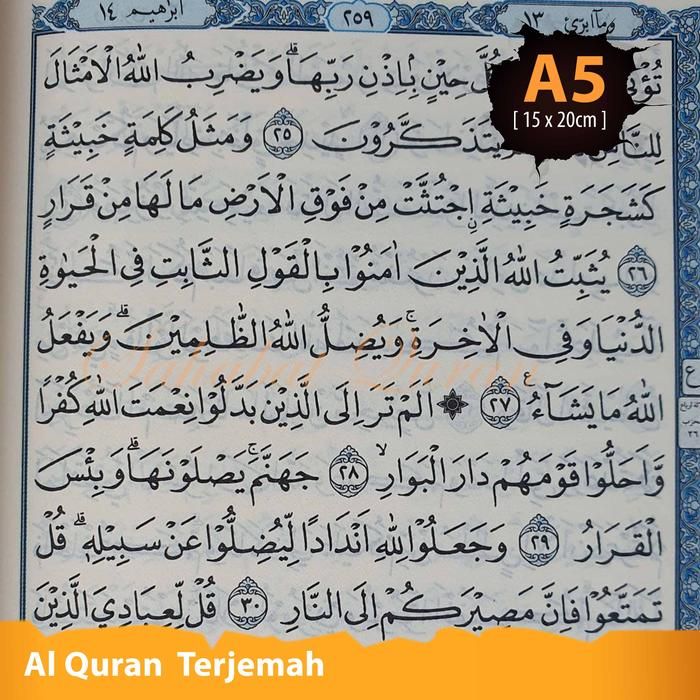 ابرٰهيم ١٤
٢٥٩
ومآابرئ ١٣
A5
[ 15 x 20cm ]
كُلَّ حِيْنٍ بِاِذْنِ رَبِّهَاۗ وَيَضْرِبُ اللّٰهُ الْاَمْثَالَ
لِلنَّاسِ يَتَذَكَّرُوْنَ ٢٥ وَمَثَلُ كَلِمَةٍ خَبِيْثَةٍ
كَشَجَرَةٍ خَبِيْثَةِ ࣙاجْتُثَّتْ مِنْ فَوْقِ الْاَرْضِ مَا لَهَا مِنْ قَرَارٍ
٢٦ يُثَبِّتُ اللّٰهُ الَّذِيْنَ اٰمَنُوْا بِالْقَوْلِ الثَّابِتِ فِى الْحَيٰوةِ
الدُّنْيَا وَفِى الْاٰخِرَةِۚ وَيُضِلُّ اللّٰهُ الظّٰلِمِيْنَۗ وَيَفْعَلُ
اللّٰهُ مَا يَشَاۤءُ ࣖ ٢٧ ۞ اَلَمْ تَرَ اِلَى الَّذِيْنَ بَدَّلُوْا نِعْمَتَ اللّٰهِ كُفْرًا
وَّاَحَلُّوْا قَوْمَهُمْ دَارَ الْبَوَارِۙ ٢٨ جَهَنَّمَۚ يَصْلَوْنَهَاۗ وَبِئْسَ
الْقَرَارُ ٢٩ وَجَعَلُوْا لِلّٰهِ اَنْدَادًا لِّيُضِلُّوْا عَنْ سَبِيْلِهٖۗ قُلْ
تَمَتَّعُوْا فَاِنَّ مَصِيْرَكُمْ اِلَى النَّارِ ٣٠ قُلْ لِّعِبَادِيَ الَّذِيْنَ
Sahabat Quran
Al Quran Terjemah